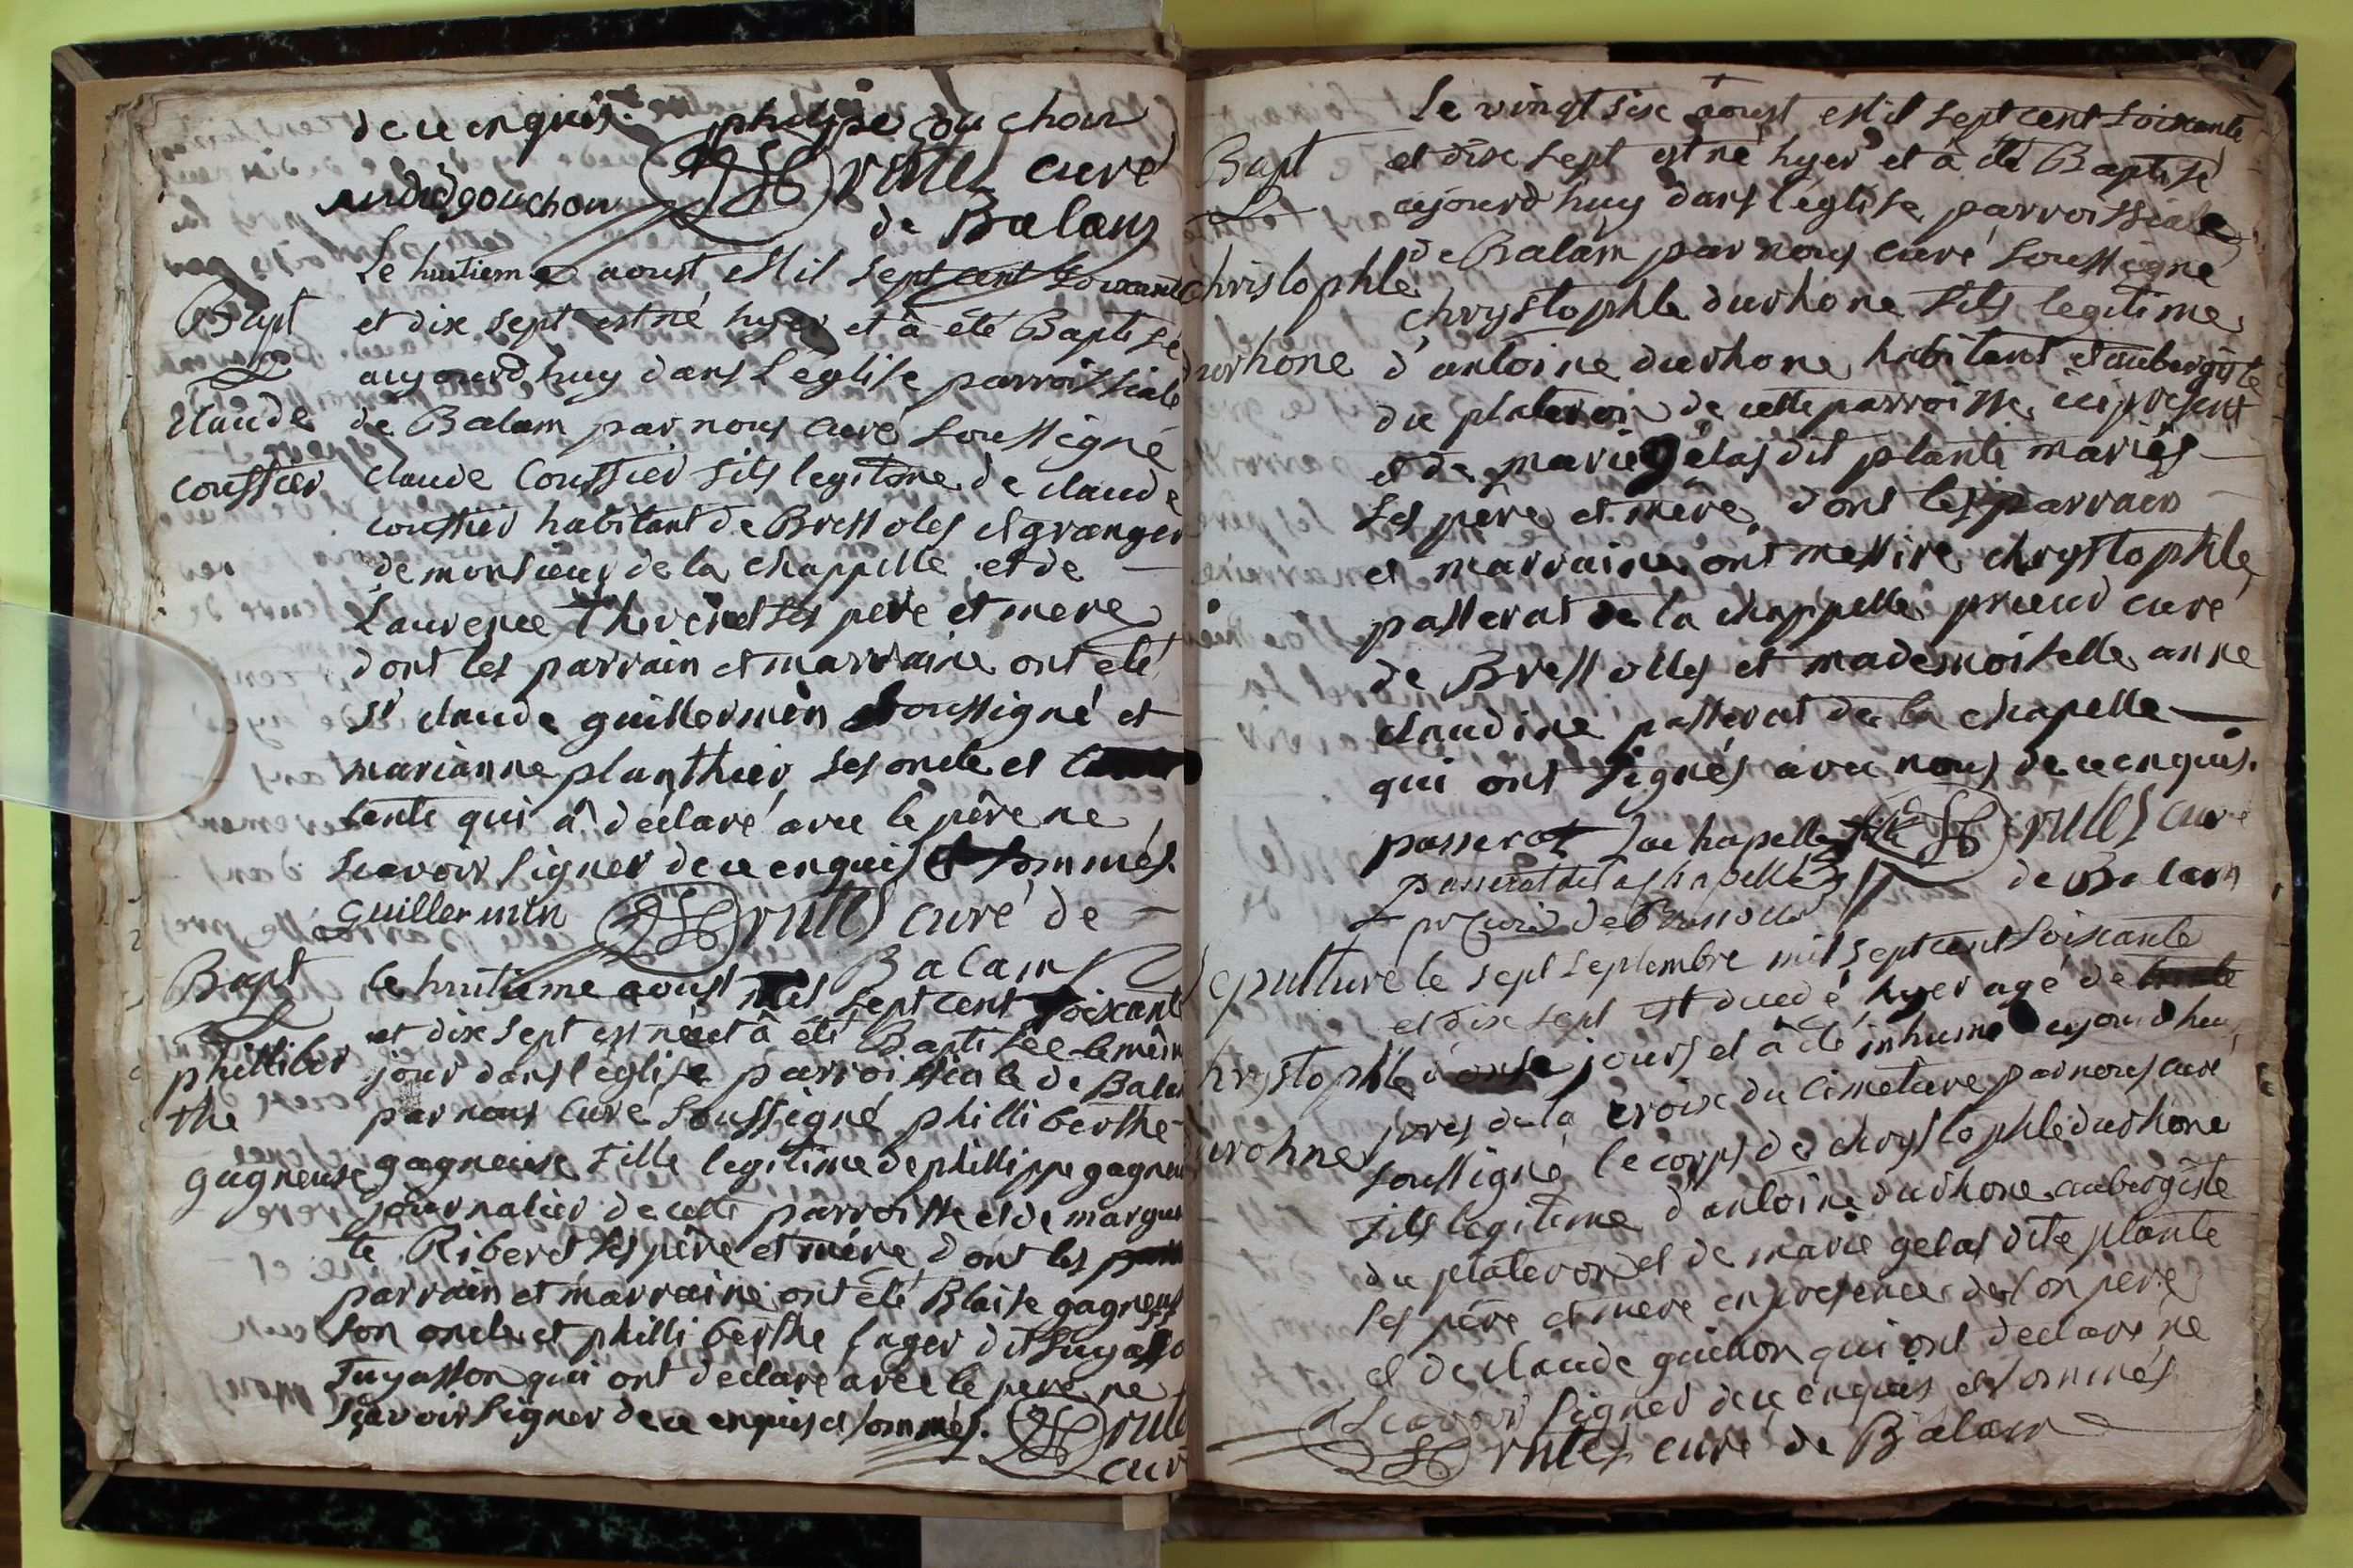 de ce enquis. philipe gouchon
andré gouchon Brulles curé
de Balans
Le huitieme aoust mil sept cent soixante
Bapt et dix sept est né hyer et à été Baptisé
aujourd'huy dans l'église parroissiale
claude de Balam par nous curé soussigné
coussier claude Coussier fils legitime de claude
coussier habitant de Bressoles et granger
de monsieur de la chappelle et de
Laurence ses pere et mere
dont les parrain et marraine ont été
Sr claude guillermin soussigné et
marianne planthier ses oncle et
tante qui à déclaré avec le père ne
scavoir signer de ce enquis et sommés.
guillermin Brulles curé de
Balam
Bapt le huitieme aoust mil sept cent soixante
et dix sept est née et à été Baptisée le même
philliber jour dans l'église parroissiale de Balam
the par nous curé soussigné philliberthe
gagneuse gagneuse fille legitime de phillippe gagneu
journalier de cette parroisse et de margue
te Riberet ses père et mère dont les
parrain et marraine ont été Blaise gagneux
son oncle et philliberthe dit
Tuyasson qui ont declaré avec le pere ne
scavoir signer de ce enquis et sommés. Brulles
curé
Le vingt six aoust mil sept cent soixante
Bapt et dix sept est né hyer et à été Baptisé
aujourd'huy dans l'église parroissiale
de Balam par nous curé soussigné
christophle chrystophle durhone fils legitime
durhone d'antoine durhone habitant et aubergiste
du platevon de cette parroisse icy présent
et de marie gelas dit plante mariés
ses père et mère, dont les parrain
et marraine ont messire chrystophle
passerat de la chappelle prieur curé
de Bressolles et mademoiselle anne
claudine passerat de la chapelle
qui ont signés avec nous de ce enquis.
passerat Lachapelle Brulles curé
passerat de la chapelle de Balam
pr curé de Bressolles
sepulture le sept septembre mil sept cent soixante
et dix sept est decedé hyer agé de
chrystophle d'onse jours et à été inhumé aujourdhuy
près de la croix du cimetière par nous curé
durohne soussigné le corps de chrystophle durhone
fils legitime d'antoine durhone aubergiste
du platevon et de marie gelas dite plante
ses père et mere en presence de son pere
et de claude guichon qui ont declaré ne
scavoir signer de ce enquis et sommés
Brulles curé de Balam